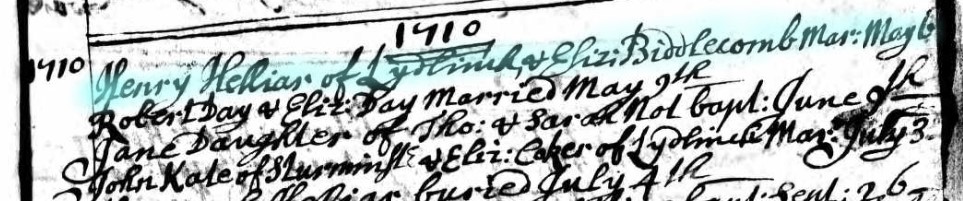 1710
1710 Henry Helliar of Lydlinch & Eliz: Biddlecomb Mar: May 6
Robert Day & Eliz: Day Married May 9th
Jane Daughter of Tho: & Sarah Not bapt: June 9th
John Kate of Sturminst & Eliz: Coker of Lydlinch Mar: July 3
Helliar buried July 4th
bapt: Sept: 26